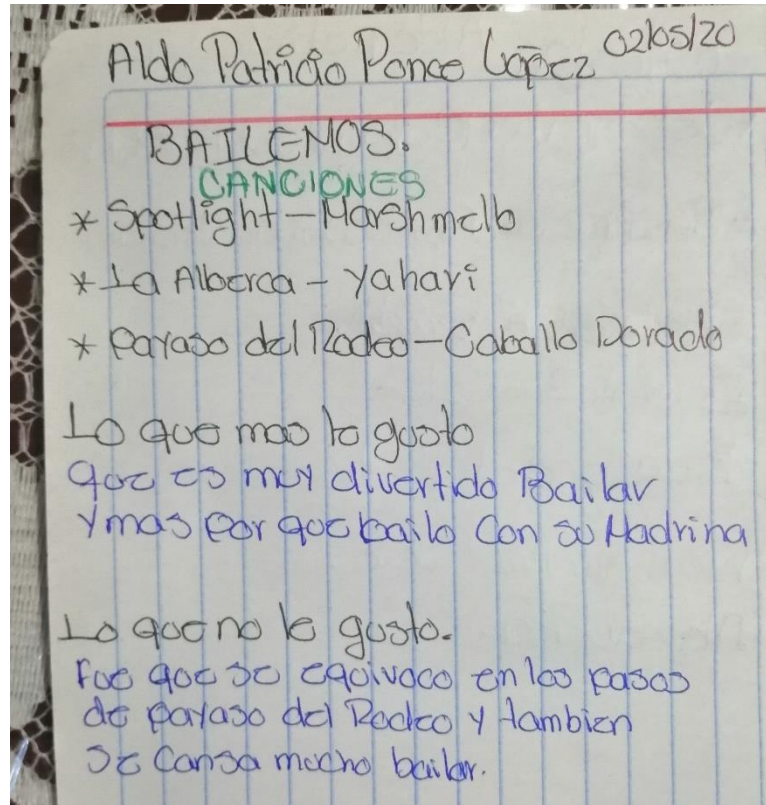 Aldo Patricio Ponce López 02/05/20
BAILEMOS.
CANCIONES
* Spotlight - Marshmello
* La Alberca - Yahari
* Payaso del Rodeo - Caballo Dorado
Lo que mas le gusto
que es muy divertido Bailar
y mas por que bailo Con su Madrina
Lo que no le gusto.
Fue que se equivoco en los pasos
de payaso del Rodeo y tambien
se Cansa mucho bailar.